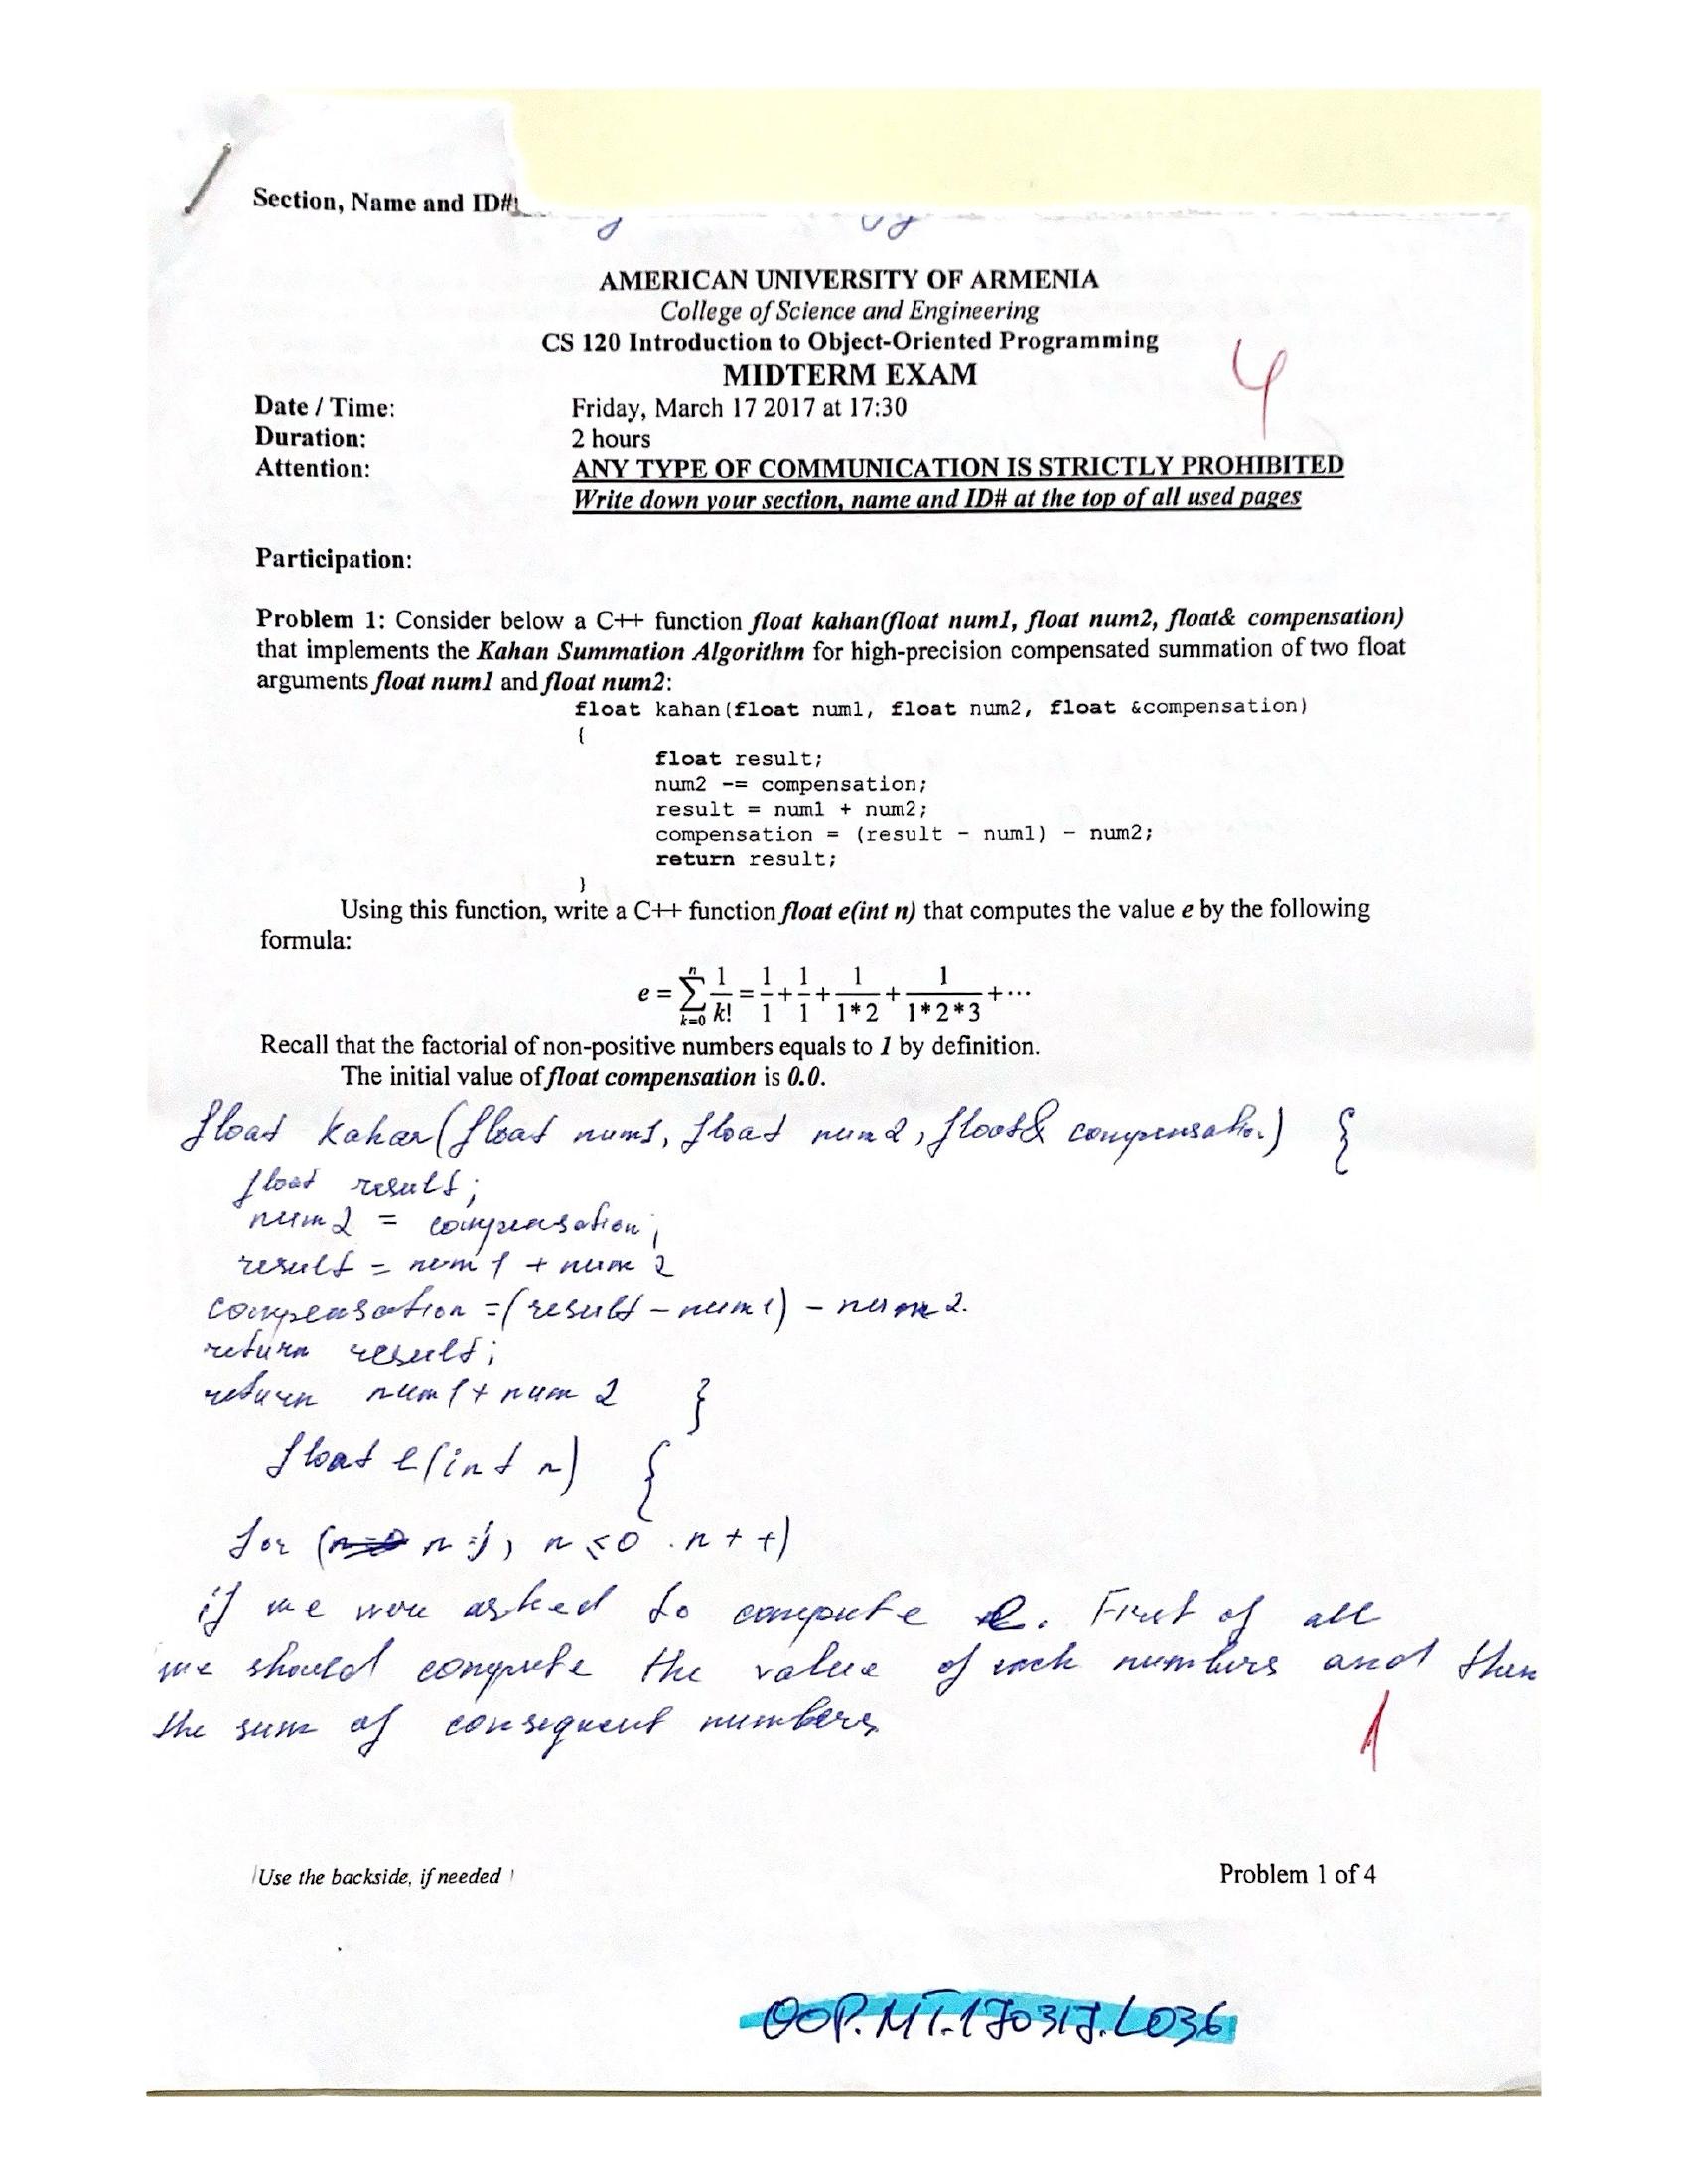 Section, Name and ID#
AMERICAN UNIVERSITY OF ARMENIA
College of Science and Engineering
CS 120 Introduction to Object-Oriented Programming
MIDTERM EXAM
4
Date / Time: Friday, March 17 2017 at 17:30
Duration: 2 hours
Attention: ANY TYPE OF COMMUNICATION IS STRICTLY PROHIBITED
Write down your section, name and ID# at the top of all used pages
Participation:
Problem 1: Consider below a C++ function float kahan(float num1, float num2, float& compensation)
that implements the Kahan Summation Algorithm for high-precision compensated summation of two float
arguments float num1 and float num2:
float kahan(float num1, float num2, float &compensation)
{
float result;
num2 -= compensation;
result = num1 + num2;
compensation = (result - num1) - num2;
return result;
}
Using this function, write a C++ function float e(int n) that computes the value e by the following
formula:
e = \sum_{k=0}^{n} \frac{1}{k!} = \frac{1}{1} + \frac{1}{1} + \frac{1}{1*2} + \frac{1}{1*2*3} + ⋯
Recall that the factorial of non-positive numbers equals to 1 by definition.
The initial value of float compensation is 0.0.
float kahan(float num1, float num2, float& compensation) {
float result;
num2 = compensation;
result = num1 + num2
compensation = (result - num1) - num2.
return result;
return num1 + num2 }
float e(int n) {
for ( n=1; n ≤ 0 . n++)
if we were asked to compute e. First of all
we should compute the value of each numbers and then
the sum of consequent numbers
1
Use the backside, if needed
Problem 1 of 4
OOP.MT.170317.L036